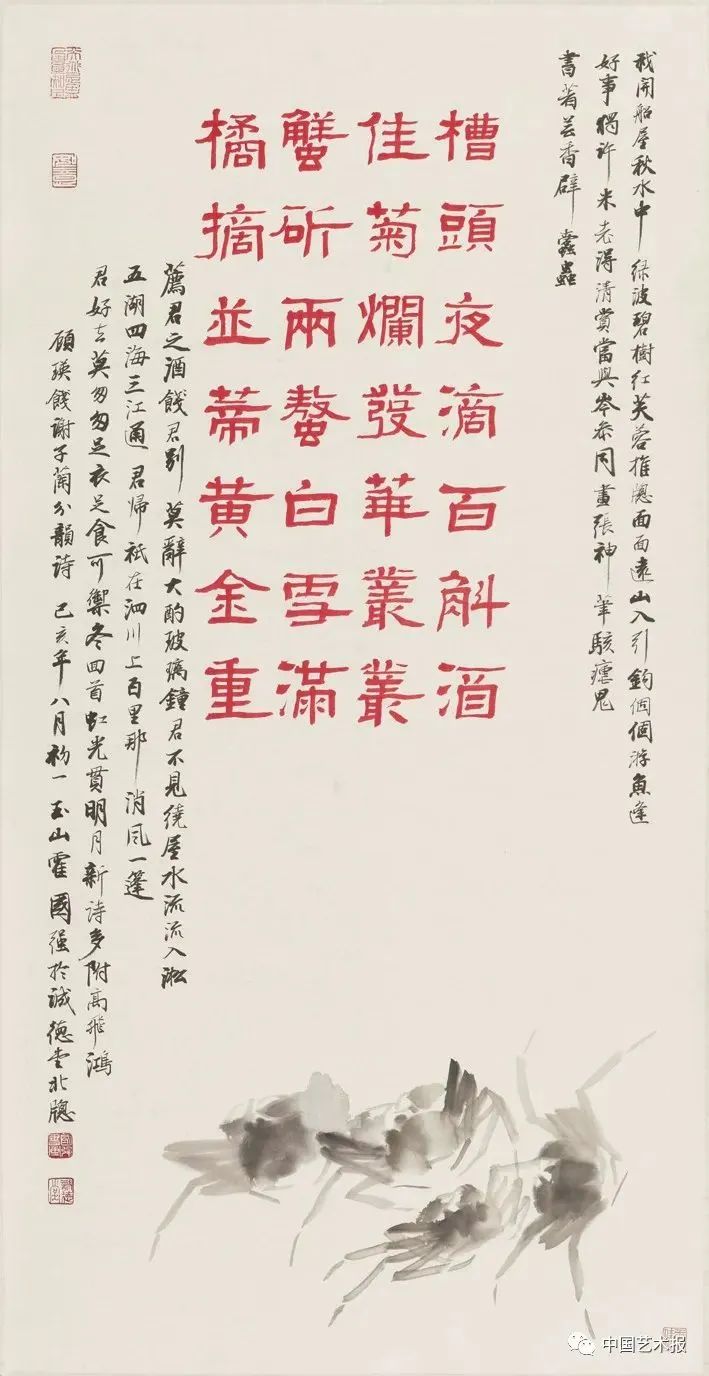 我開船屋秋水中緑波碧樹紅芙蓉推牕面面遠山入引鈎個個游魚逢
好事獨許米老得清賞當與岑參同畫張神筆駭瘧鬼
書著芸香辟蠹蟲
槽頭夜滴百斛酒
佳菊爛發華叢叢
蟹斫兩螯白雪滿
橘摘並蒂黄金重
薦君之酒餞君别莫辭大酌玻璃鐘君不見繞屋水流流入淞
五湖四海三江通君帰祇在泗川上百里那消風一篷
君好去莫匆匆足衣足食可禦冬回首虹光貫明月新詩多附高飛鴻
顧瑛餞謝子蘭分韻詩 己亥年八月初一玉山霍國强於誠德堂北牕
中国艺术报